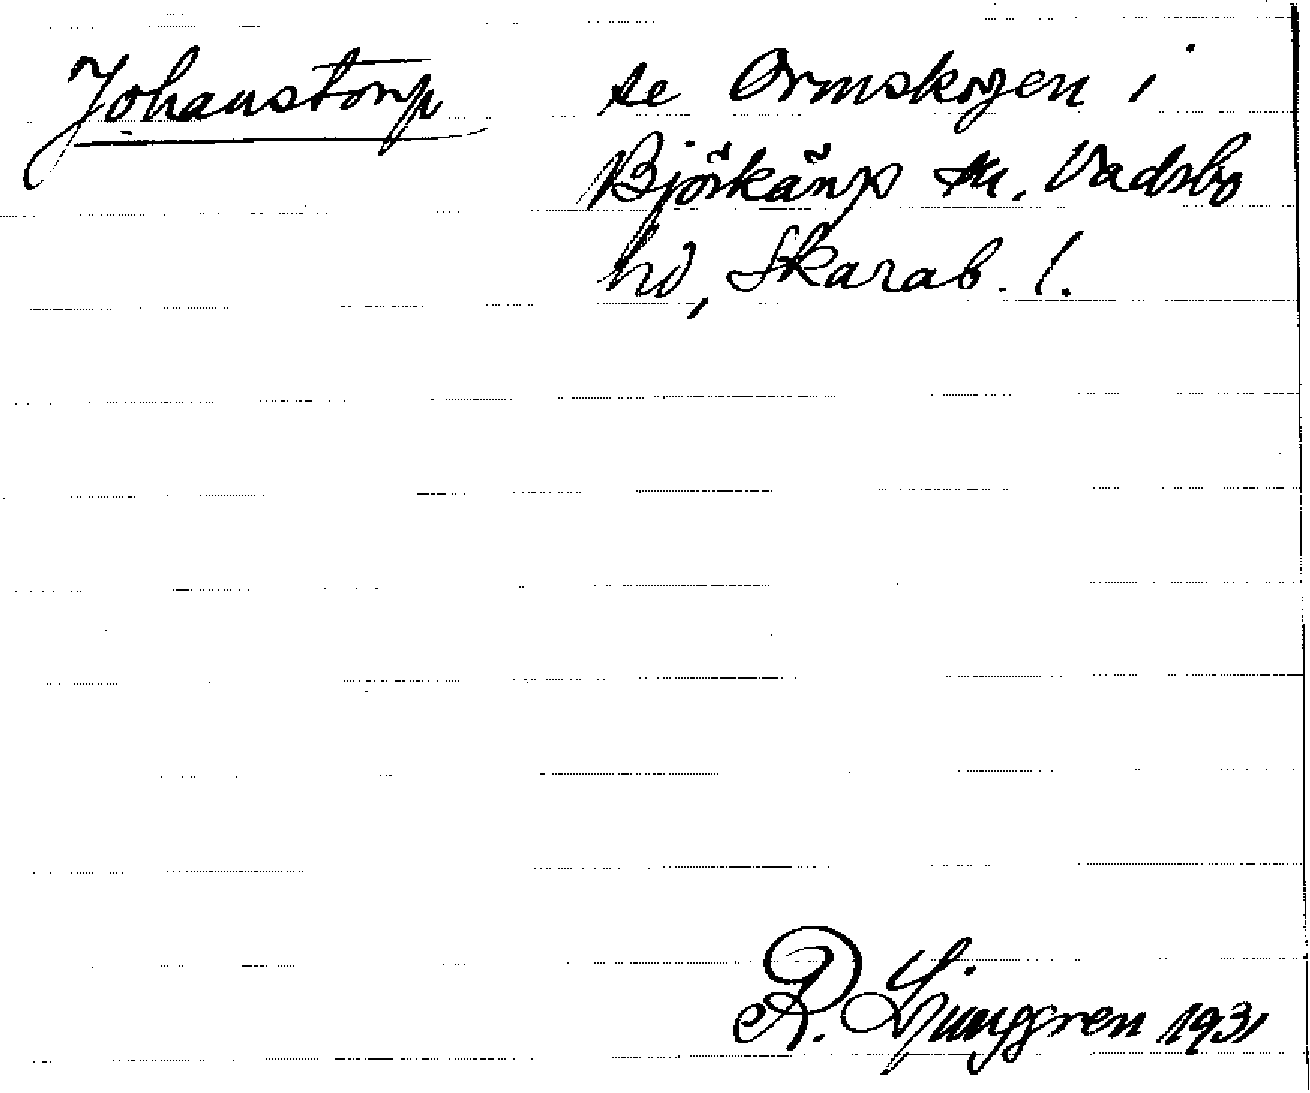 Johanstorp se Ormskogen i
Björkängs sn. Vadsbo
hd, Skarab. l.
R. Ljunggren 1931